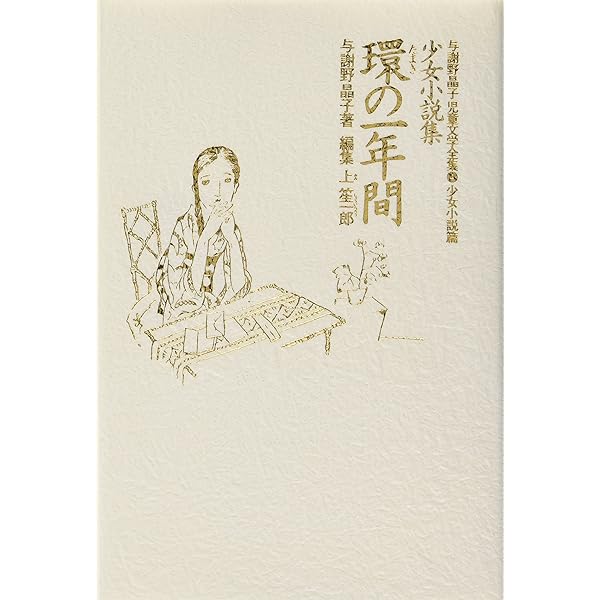 与謝野晶子児童文学全集 少女小説篇
少女小説集
環の一年間
たまき
与謝野晶子著 編集 上笙一郎